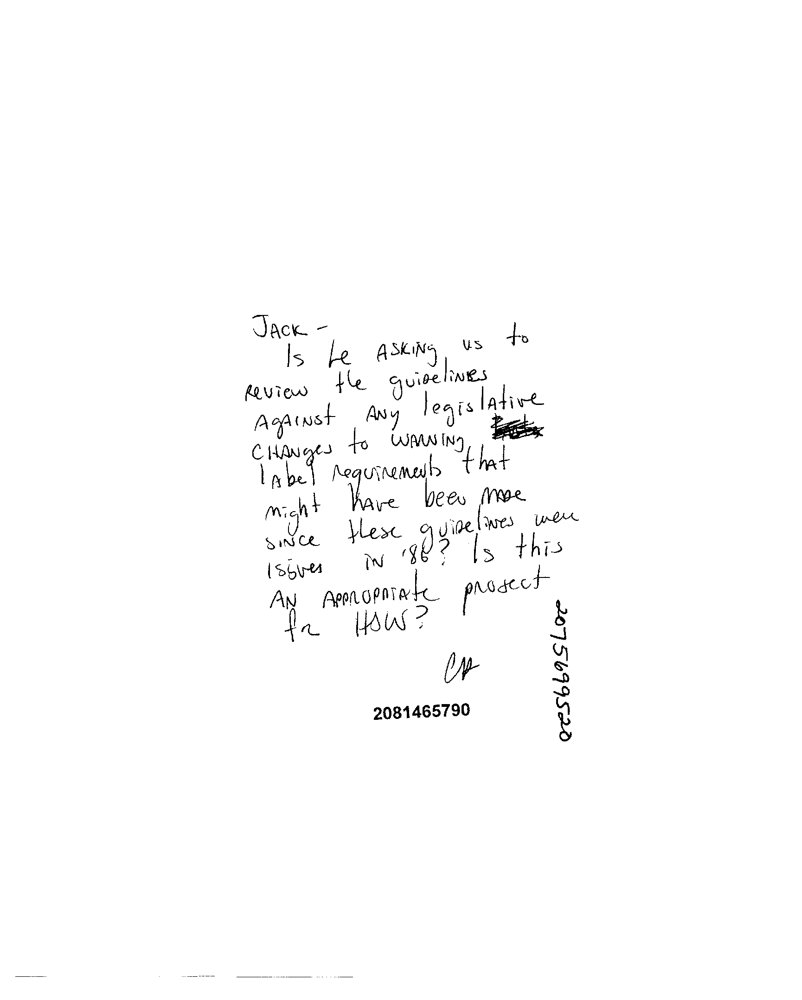 JACK -
Is he ASKING us to
Review the guidelines
AgAINst ANy legislAtive
CHANges to WARNING
lAbel requirements that
might have been made
since these guidelines were
issued IN '86? Is this
AN APPROPRIAte project
for HSW?
CH
2081465790
2075699520